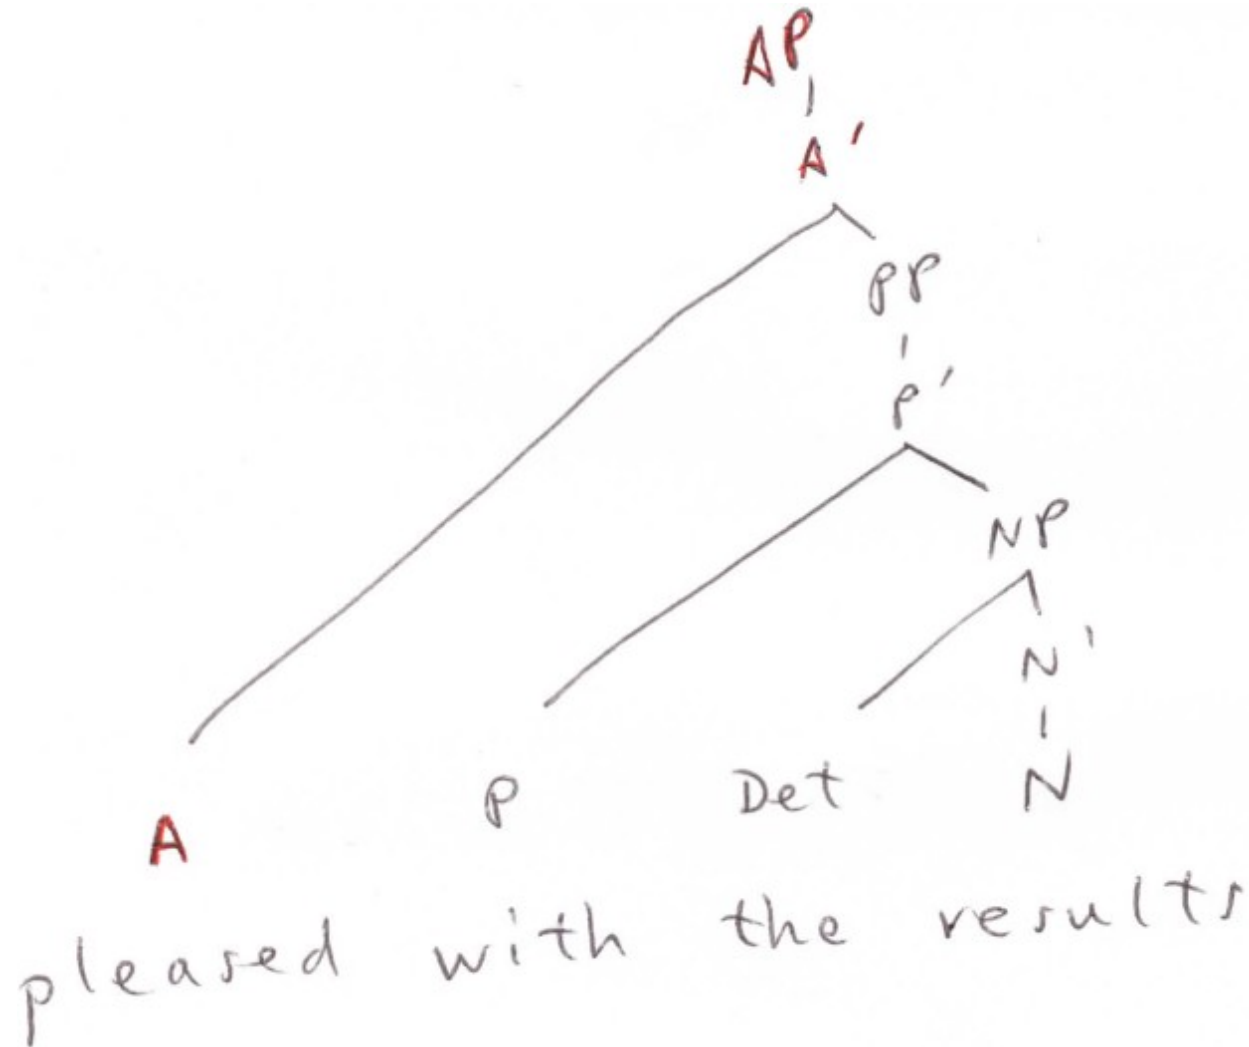 AP
A'
PP
P'
NP
N'
A P Det N
pleased with the results